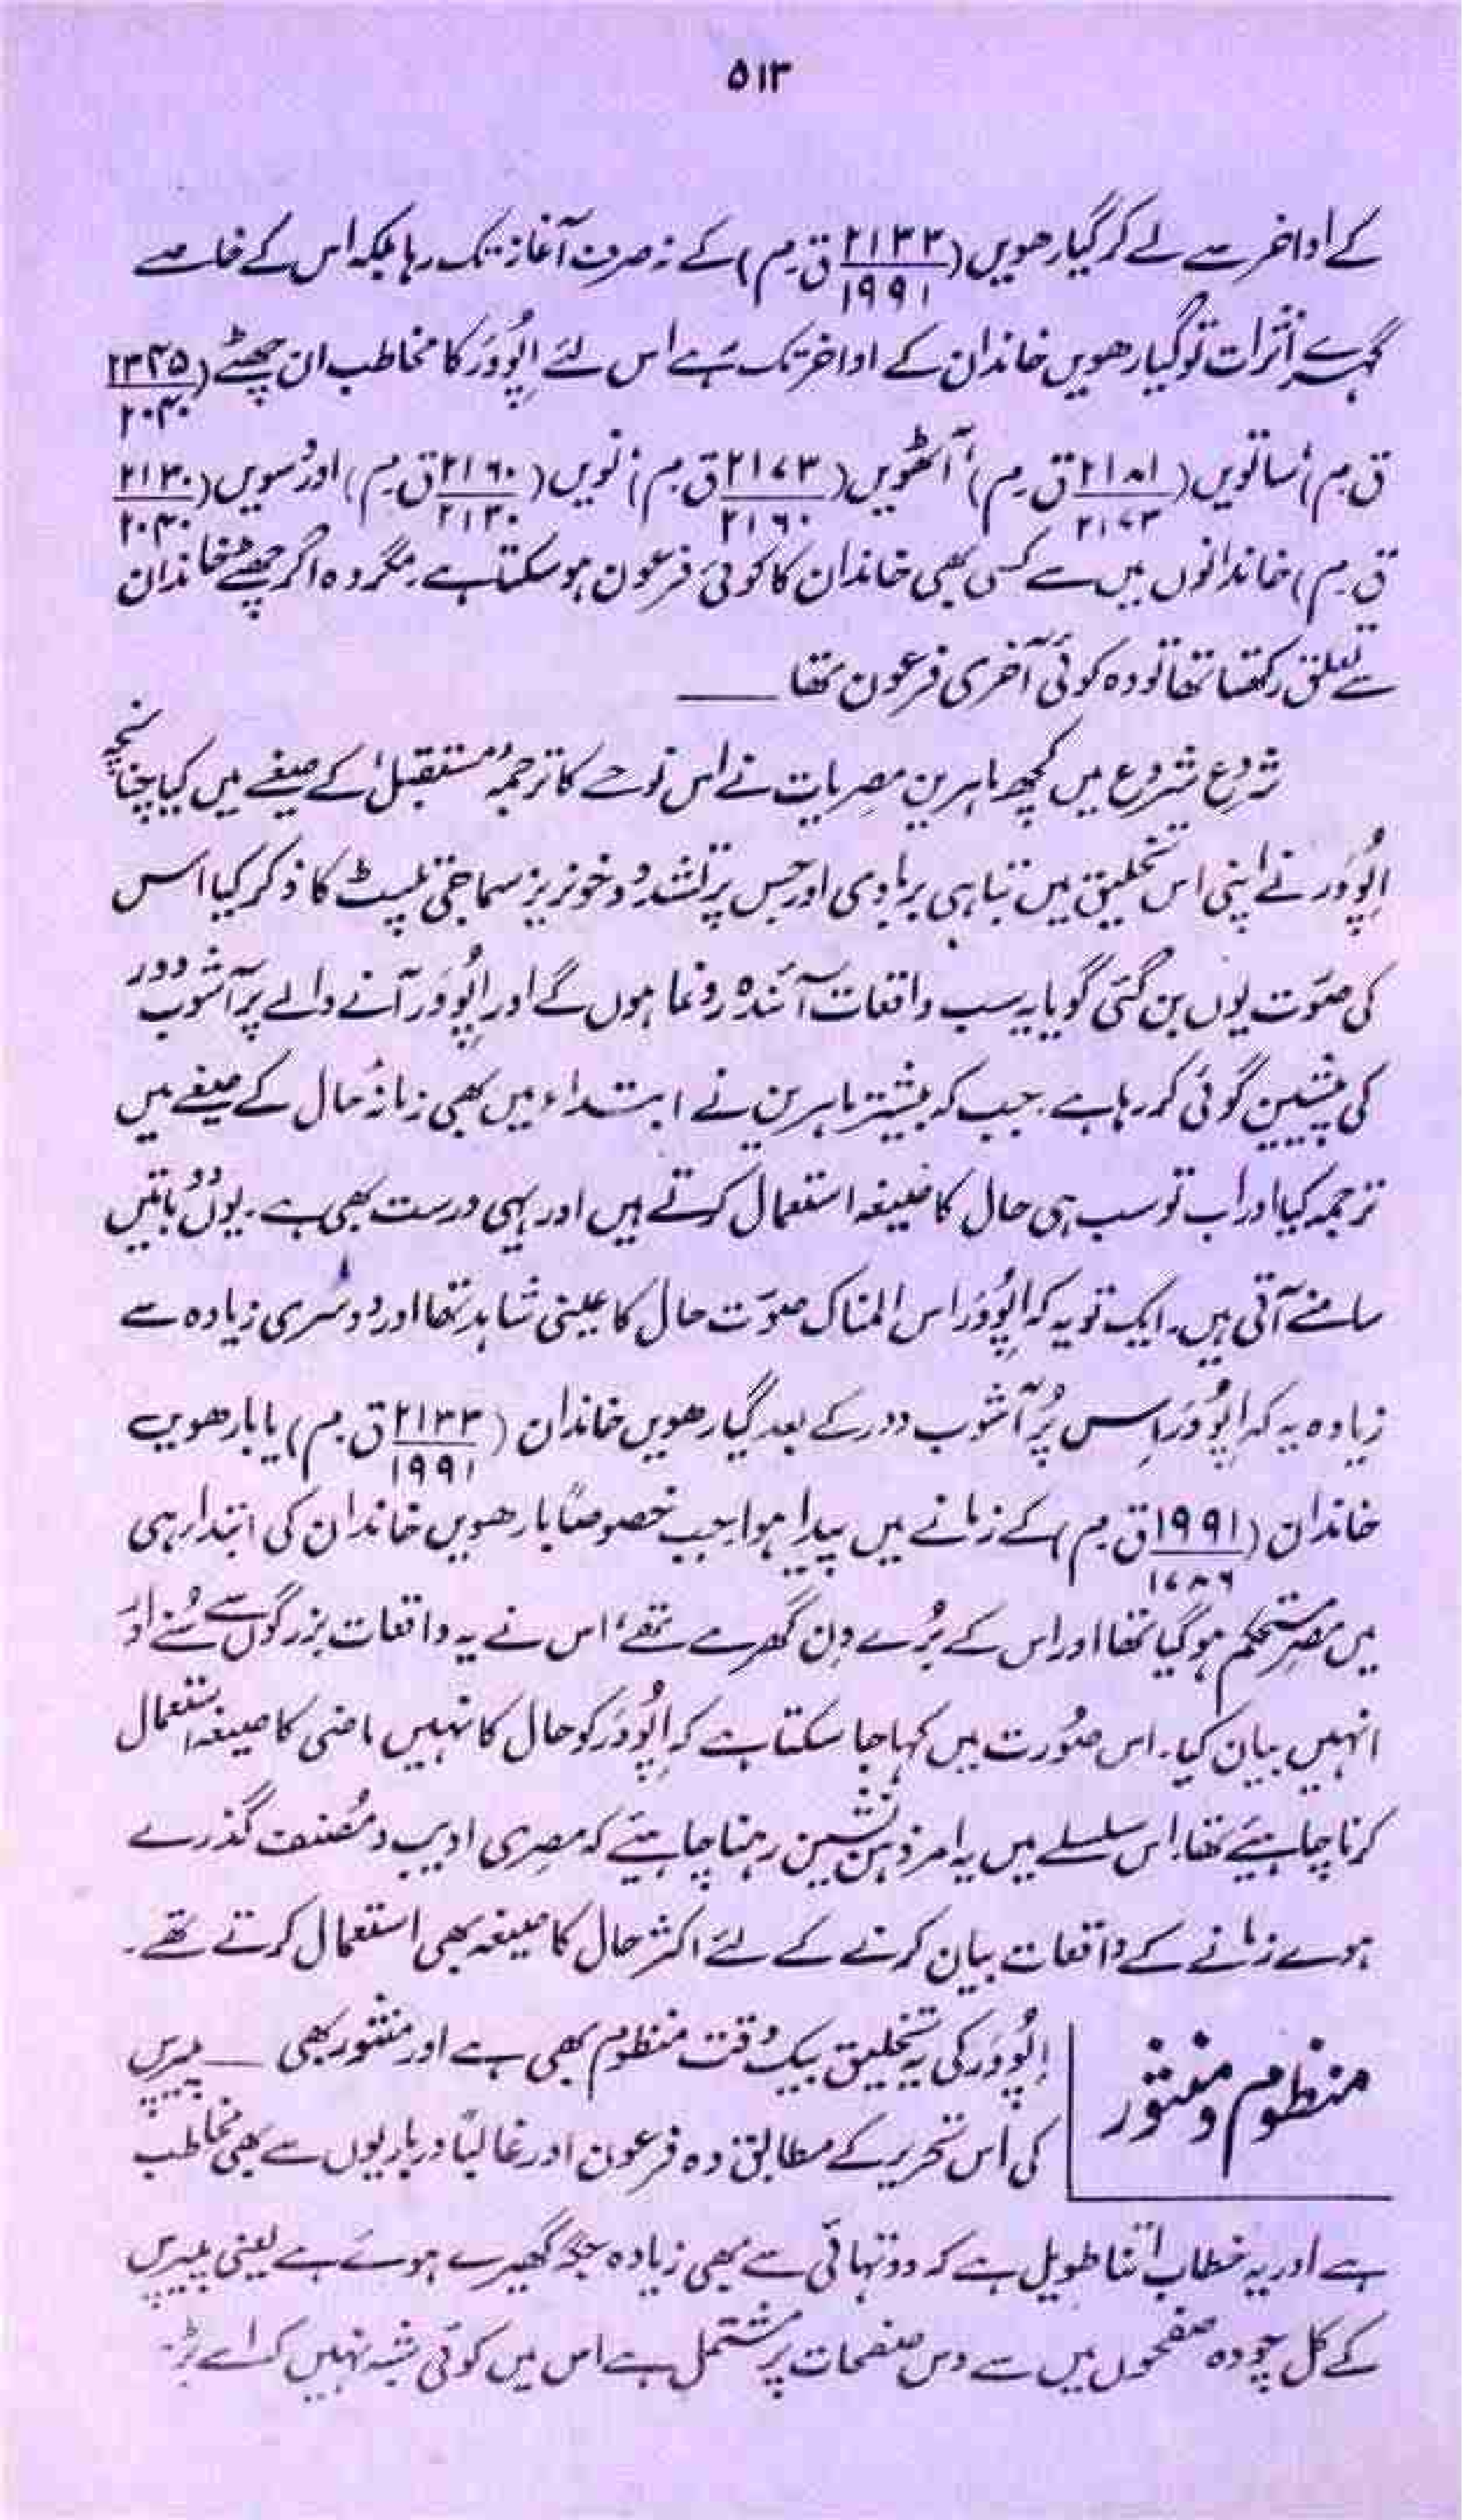 ۵۱۳
کے اواخر سے لے کر گیارھویں (۲۱۳۳/۱۹۹۱ ق۔م) کے نہ صرف آغاز تک رہا بلکہ اس کے خاصے
گہرے اثرات تو گیارھویں خاندان کے اواخر تک رہے اس لئے اِپُووَر کا مخاطب ان چھٹے (۲۳۴۵/۲۰۴۰
ق۔م)، ساتویں (۲۱۸۱/۲۱۷۳ ق۔م)، آٹھویں (۲۱۷۳/۲۱۶۰ ق۔م)، نویں (۲۱۶۰/۲۱۳۰ ق۔م) اور دسویں (۲۱۳۰/۲۰۴۰
ق۔م) خاندانوں میں سے کسی بھی خاندان کا کوئی فرعون ہو سکتا ہے۔ مگر وہ اگر چھٹے خاندان
سے تعلق رکھتا تھا تو وہ کوئی آخری فرعون تھا ——
شروع شروع میں کچھ ماہرین مصریات نے اس نوحے کا ترجمہ ’مستقبل‘ کے صیغے میں کیا چنانچہ
اِپُووَر نے اپنی اس تخلیق میں تباہی بربادی اور جس پرتشدد و خونریز سماجی تلپٹ کا ذکر کیا اس
کی صورت یوں بن گئی گویا یہ سب واقعات آئندہ رونما ہوں گے اور اِپُووَر آنے والے پرآشوب دور
کی پیشین گوئی کر رہا ہے۔ جب کہ بیشتر ماہرین نے ابتداء میں بھی زمانۂ حال کے صیغے میں
ترجمہ کیا اور اب تو سب ہی حال کا صیغہ استعمال کرتے ہیں اور یہی درست بھی ہے۔ یوں دو باتیں
سامنے آتی ہیں۔ ایک تو یہ کہ اِپُووَر اس المناک صورت حال کا عینی شاہد تھا اور دوسری زیادہ سے
زیادہ یہ کہ اِپُووَر اِس پُرآشوب دور کے بعد گیارھویں خاندان (۲۱۳۳/۱۹۹۱ ق۔م) یا بارھویں
خاندان (۱۹۹۱/۱۷۸۶ ق۔م) کے زمانے میں پیدا ہوا جب خصوصاً بارھویں خاندان کی ابتداء ہی
میں مصر مستحکم ہو گیا تھا اور اس کے بُرے دن گھرے تھے، اس نے یہ واقعات بزرگوں سے سُنے اور
انہیں بیان کیا۔ اس صورت میں کہا جا سکتا ہے کہ اِپُووَر کو حال کا نہیں ماضی کا صیغہ استعمال
کرنا چاہیئے تھا۔ اس سلسلے میں یہ امر ذہن نشین رہنا چاہیئے کہ مصری ادیب و مصنف گذرے
ہوے زمانے کے واقعات بیان کرنے کے لئے اکثر حال کا صیغہ بھی استعمال کرتے تھے۔
منظوم و منثور
اِپُووَر کی یہ تخلیق بیک وقت منظوم بھی ہے اور منثور بھی — پیپرس
کی اس تحریر کے مطابق وہ فرعون اور غالباً درباریوں سے بھی مخاطب
ہے اور یہ خطاب اتنا طویل ہے کہ دو تہائی سے بھی زیادہ جگہ گھیرے ہوئے ہے یعنی پیپرس
کے کل چودہ صفحوں میں سے دس صفحات پر مشتمل ہے اس میں کوئی شبہ نہیں کہ اسے